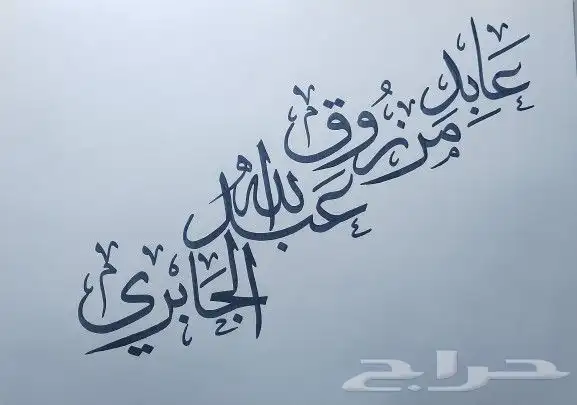 عَابِد
مَرزُوق
عَبدالله
الجَابْري
حراج